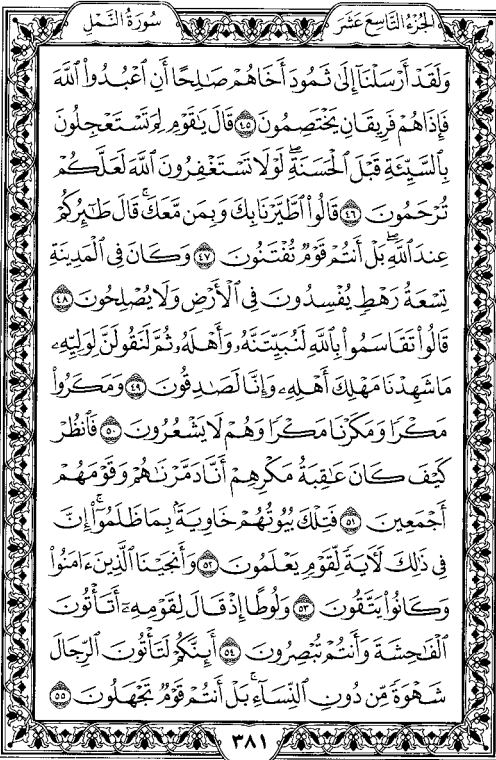 سُورَةُ النَّمْلِ
الجُزْءُ التَّاسِعَ عَشَرَ
وَلَقَدْ أَرْسَلْنَآ إِلَىٰ ثَمُودَ أَخَاهُمْ صَٰلِحًا أَنِ ٱعْبُدُوا۟ ٱللَّهَ
فَإِذَا هُمْ فَرِيقَانِ يَخْتَصِمُونَ ٤٥ قَالَ يَٰقَوْمِ لِمَ تَسْتَعْجِلُونَ
بِٱلسَّيِّئَةِ قَبْلَ ٱلْحَسَنَةِ ۖ لَوْلَا تَسْتَغْفِرُونَ ٱللَّهَ لَعَلَّكُمْ
تُرْحَمُونَ ٤٦ قَالُوا۟ ٱطَّيَّرْنَا بِكَ وَبِمَن مَّعَكَ ۚ قَالَ طَٰٓئِرُكُمْ
عِندَ ٱللَّهِ ۖ بَلْ أَنتُمْ قَوْمٌ تُفْتَنُونَ ٤٧ وَكَانَ فِى ٱلْمَدِينَةِ
تِسْعَةُ رَهْطٍ يُفْسِدُونَ فِى ٱلْأَرْضِ وَلَا يُصْلِحُونَ ٤٨
قَالُوا۟ تَقَاسَمُوا۟ بِٱللَّهِ لَنُبَيِّتَنَّهُۥ وَأَهْلَهُۥ ثُمَّ لَنَقُولَنَّ لِوَلِيِّهِۦ
مَا شَهِدْنَا مَهْلِكَ أَهْلِهِۦ وَإِنَّا لَصَٰدِقُونَ ٤٩ وَمَكَرُوا۟
مَكْرًا وَمَكَرْنَا مَكْرًا وَهُمْ لَا يَشْعُرُونَ ٥٠ فَٱنظُرْ
كَيْفَ كَانَ عَٰقِبَةُ مَكْرِهِمْ أَنَّا دَمَّرْنَٰهُمْ وَقَوْمَهُمْ
أَجْمَعِينَ ٥١ فَتِلْكَ بُيُوتُهُمْ خَاوِيَةًۢ بِمَا ظَلَمُوٓا۟ ۗ إِنَّ
فِى ذَٰلِكَ لَءَايَةً لِّقَوْمٍ يَعْلَمُونَ ٥٢ وَأَنجَيْنَا ٱلَّذِينَ ءَامَنُوا۟
وَكَانُوا۟ يَتَّقُونَ ٥٣ وَلُوطًا إِذْ قَالَ لِقَوْمِهِۦٓ أَتَأْتُونَ
ٱلْفَٰحِشَةَ وَأَنتُمْ تُبْصِرُونَ ٥٤ أَئِنَّكُمْ لَتَأْتُونَ ٱلرِّجَالَ
شَهْوَةً مِّن دُونِ ٱلنِّسَآءِ ۚ بَلْ أَنتُمْ قَوْمٌ تَجْهَلُونَ ٥٥
٣٨١